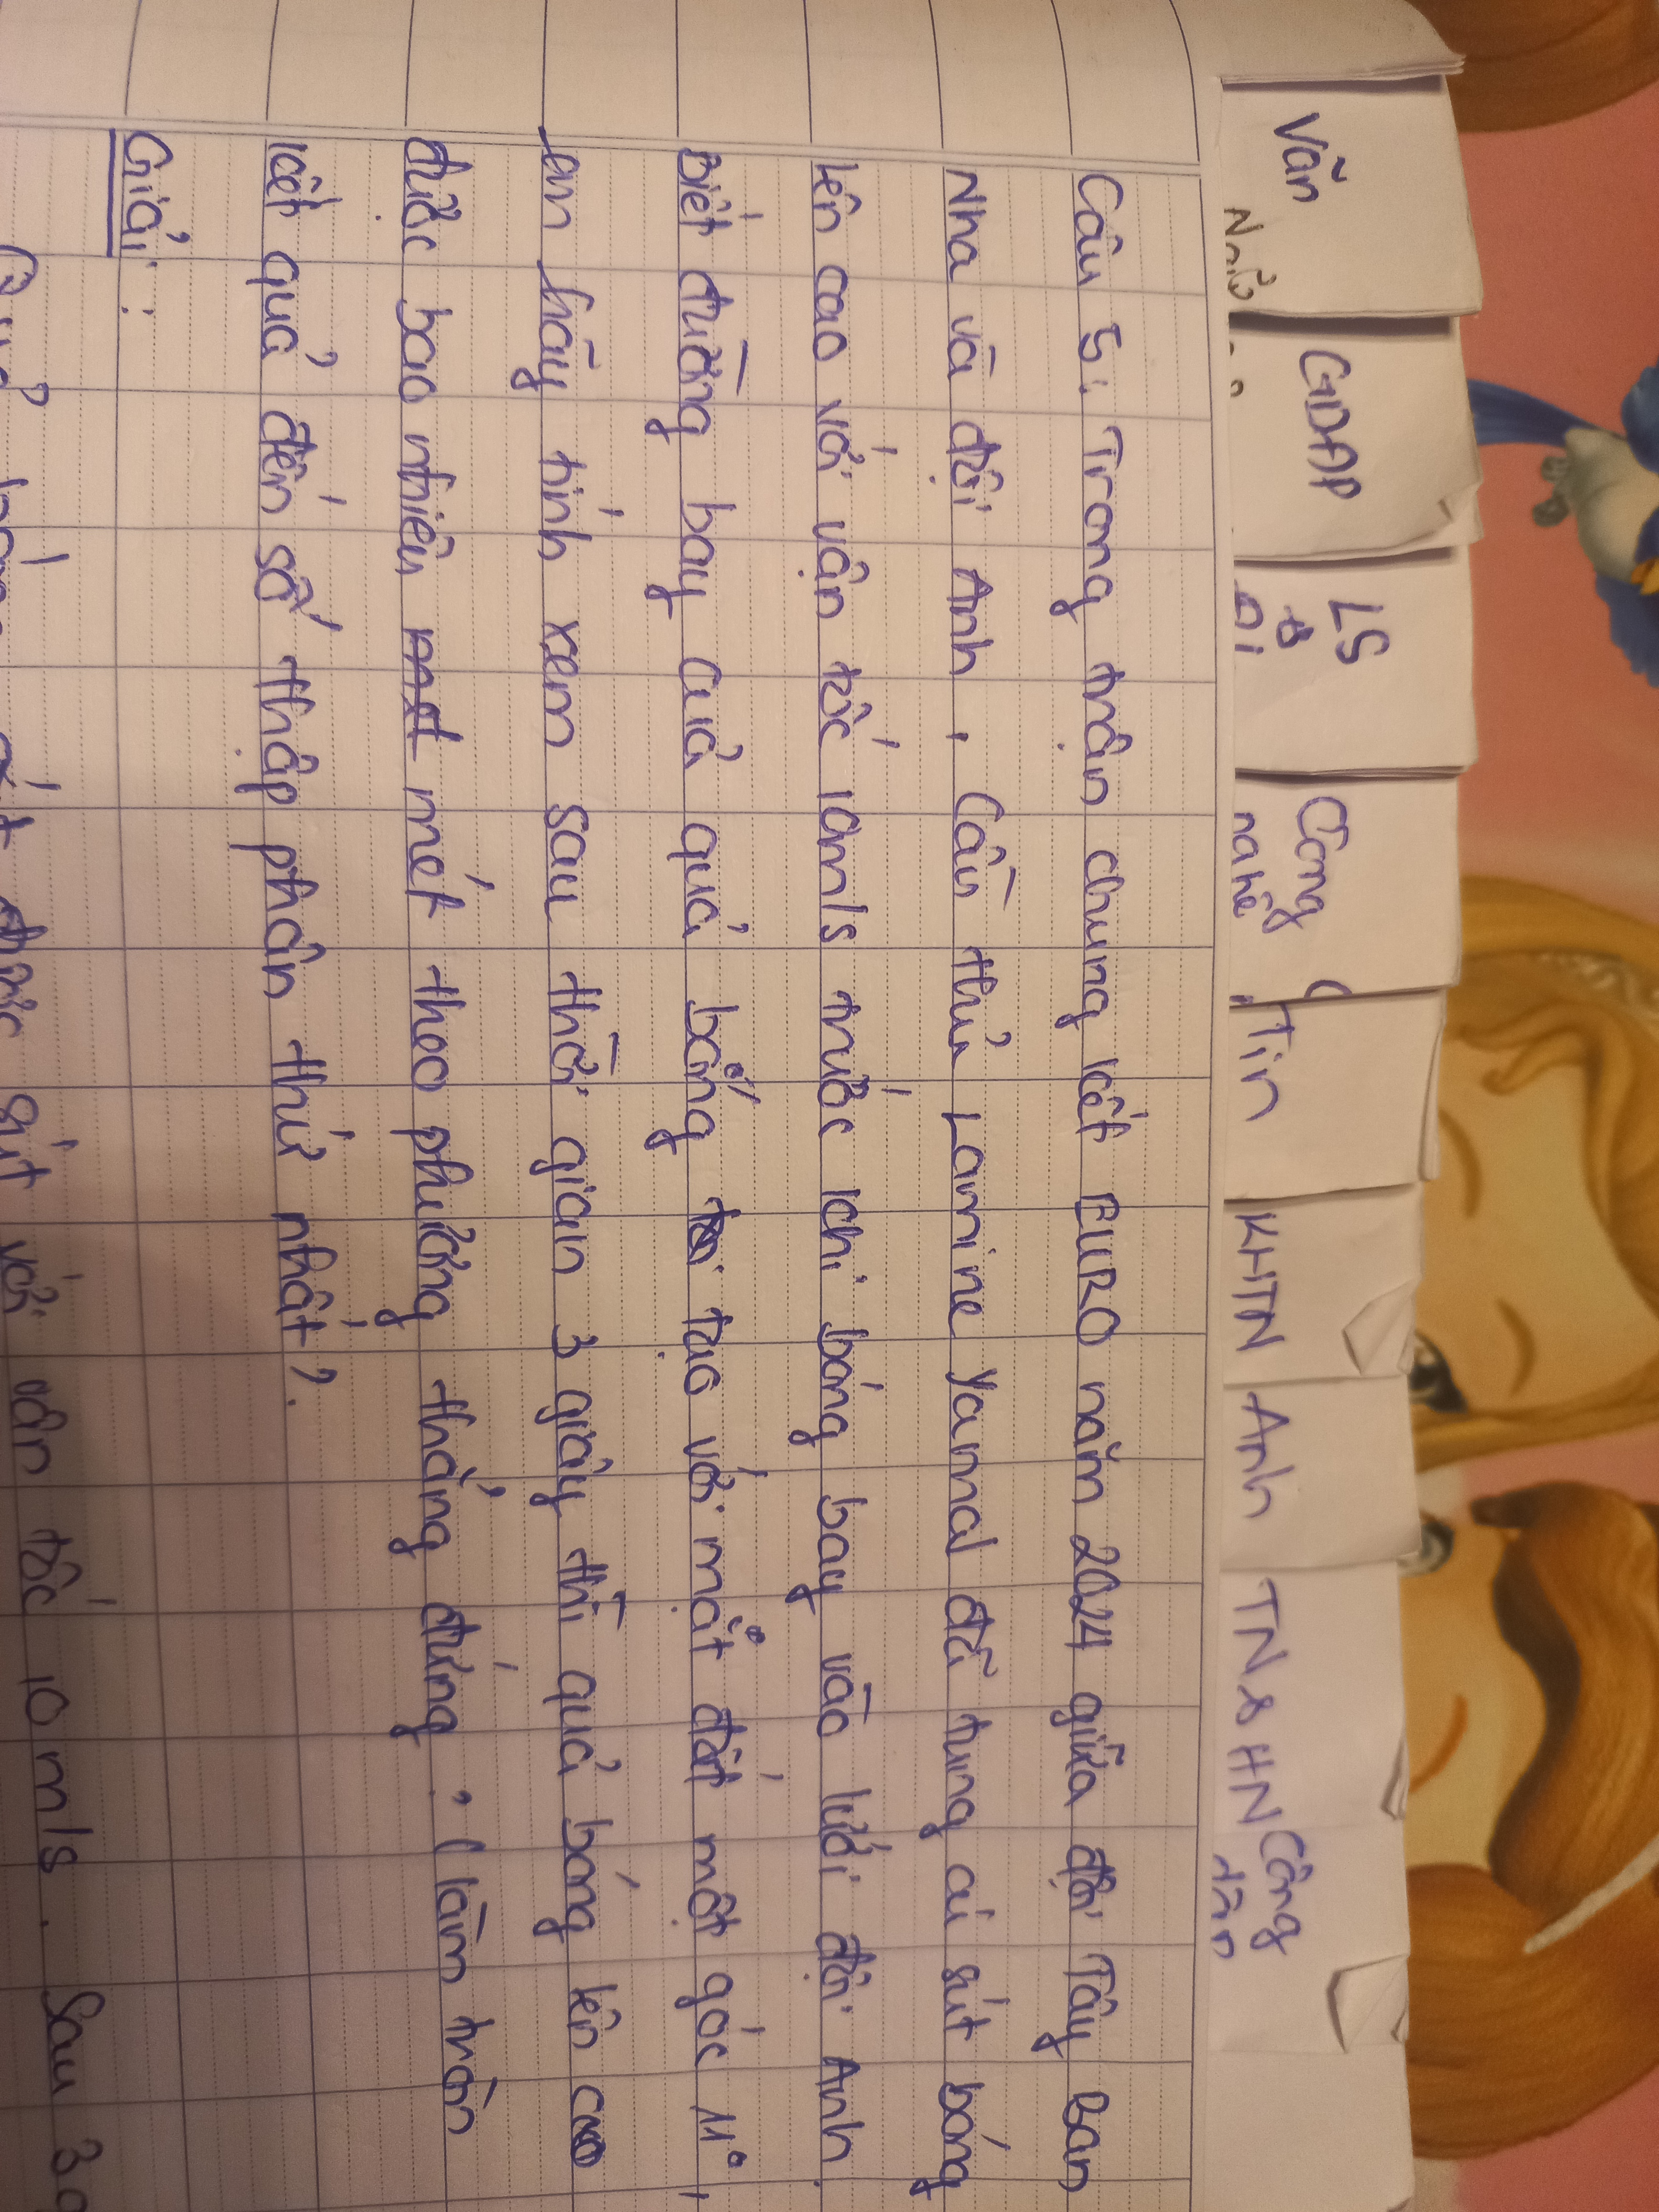 Văn
GDĐP
LS
Công
nghệ
Tin
KHTN
Anh
TN & HN
Công
dân
Câu 5: Trong trận chung kết EURO năm 2024 giữa đội Tây Ban
Nha và đội Anh, Cầu thủ Lamine Yamal đã tung cú sút bóng
lên cao với vận tốc 10m/s trước khi bóng bay vào lưới đội Anh.
Biết đường bay của quả bóng tạo với mặt đất một góc 11°,
em hãy tính xem sau thời gian 3 giây thì quả bóng lên cao
được bao nhiêu mét theo phương thẳng đứng: (làm tròn
kết quả đến số thập phân thứ nhất?.
Giải:
sút với vận tốc 10m/s. Sau 3